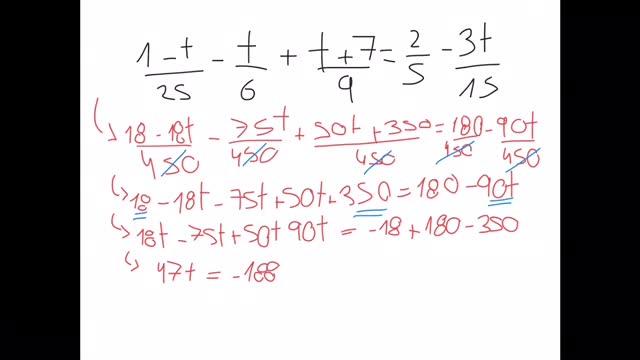 (1-t)/25 - t/6 + (t+7)/9 = 2/5 - 3t/15
(18-18t)/450 - 75t/450 + (50t+350)/450 = 180/450 - 90t/450
18-18t-75t+50t+350=180-90t
18t-75t+50t 90t = -18+180-350
47t = -188